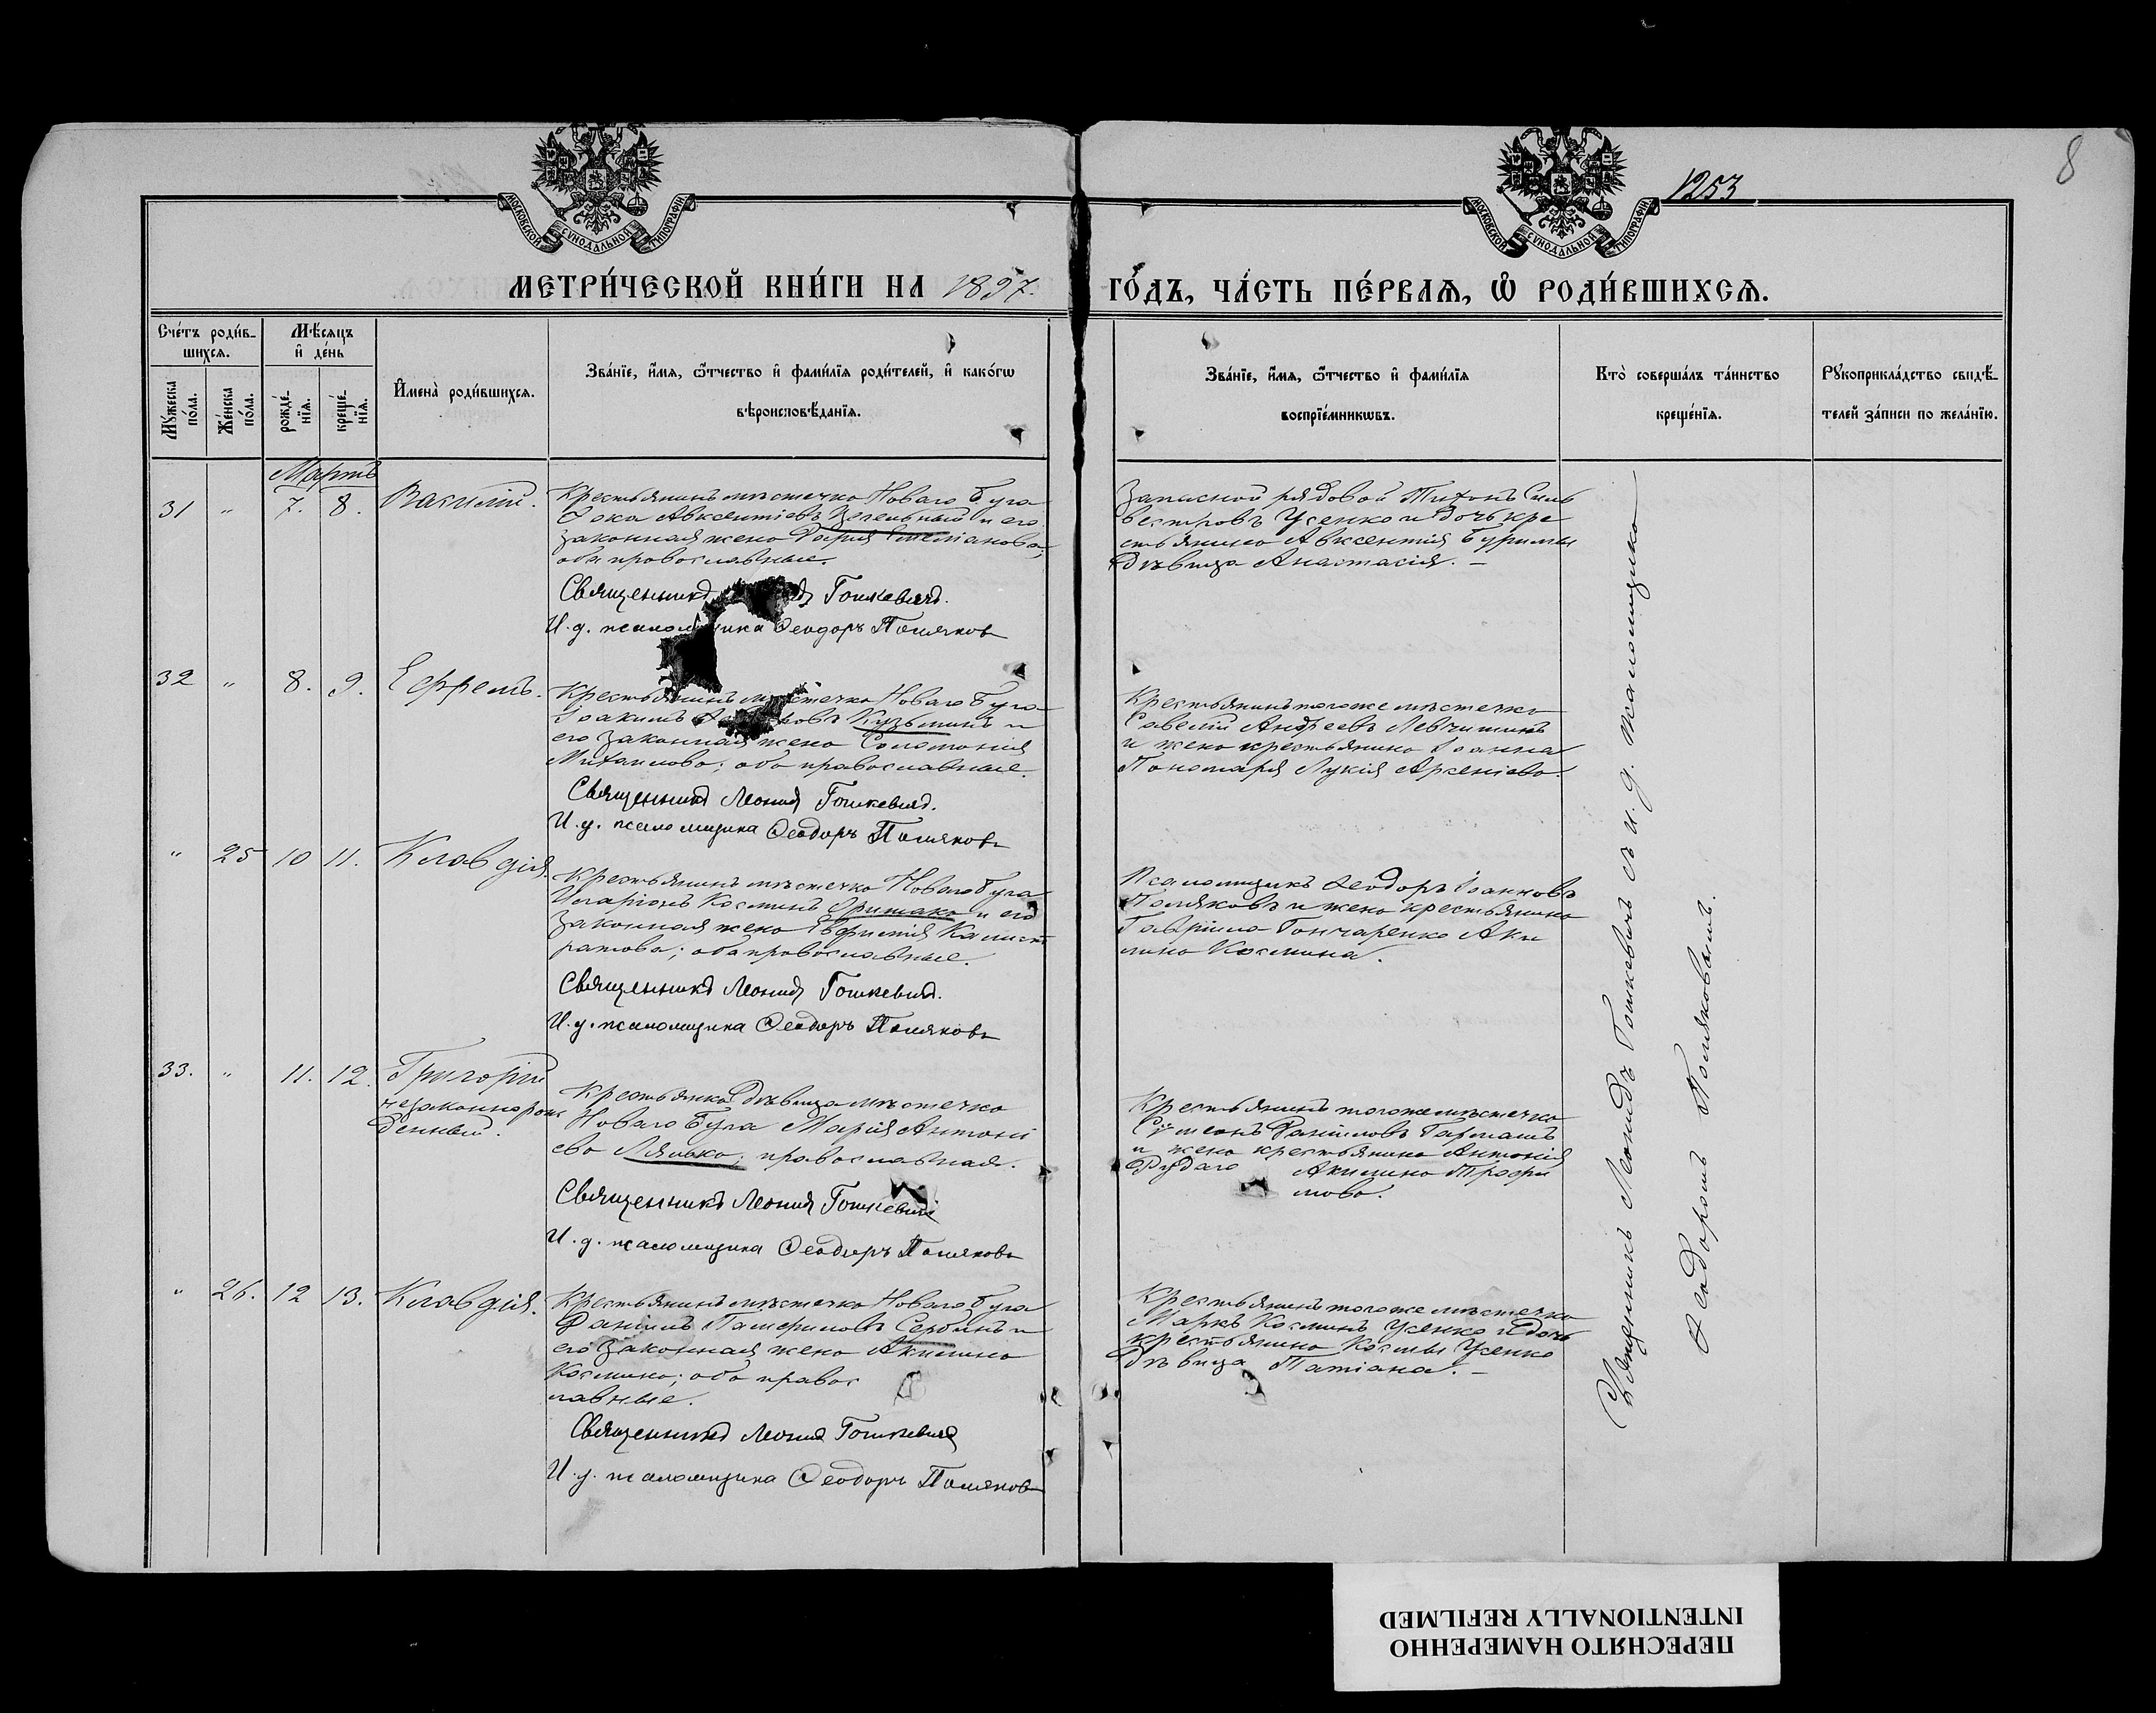 8
1253
МОСКОВСКОЙ СѴНОДАЛЬНОЙ ТИПОГРАФІИ
МОСКОВСКОЙ СѴНОДАЛЬНОЙ ТИПОГРАФІИ
МЕТРИ́ЧЕСКОЙ КНИ́ГИ НА 1897. ГО́ДЪ, ЧА́СТЬ ПЕ́РВАѦ, Ѡ҆ РОДИ́ВШИХСѦ.
Сче́тъ роди́в-
шихсѧ.
Мꙋ́жеска по́ла.
Же́нска по́ла.
Мѣ́сѧцъ
и҆ де́нь
рожде́-
нїѧ.
креще́-
нїѧ.
И҆мена̀ роди́вшихсѧ.
Зва́нїе, и҆́мѧ, ѻ҆́тчество и҆ фами́лїѧ роди́телей, и҆ како́гѡ
вѣроисповѣ́данїѧ.
Зва́нїе, и҆́мѧ, ѻ҆́тчество и҆ фами́лїѧ
воспрїе́мникѡвъ.
Кто̀ соверша́лъ та́инство
креще́нїѧ.
Рꙋкоприкла́дство свидѣ́-
телей за́писи по жела́нїю.
Мартъ
31 " 7. 8. Василій.
Крестьянинъ мѣстечка Новаго Буга
Фока Авксентіевъ и его
законная жена Дарія
оба православные.
Священникъ Гошкевичъ.
И. д. псаломщика Ѳеодоръ Поляковъ
Запасной рядовой Тихонъ Силь
вестровъ Усенко и дочь кре
стьянина Авксентія Буримы
дѣвица Анастасія. –
32 " 8. 9. Ефремъ.
Крестьянинъ мѣстечка Новаго Буга
Іоакимъ Кузьминъ и
его законная жена Соломонія
Михаилова; оба православные.
Священникъ Леонид Гошкевичъ.
И. д. псаломщика Ѳеодоръ Поляковъ
Крестьянинъ тогоже мѣстечка
Савелій Андреевъ Левчишинъ
и жена крестьянина Іоанна
Пономаря Лукія Арсеніева.
" 25 10 11. Клавдія.
Крестьянинъ мѣстечка Новаго Буга
Иларіонъ Косминъ и его
законная жена Евфимія Калист
ратова; оба православные.
Священникъ Леонид Гошкевичъ.
И. д. псаломщика Ѳеодоръ Поляковъ
Псаломщикъ Ѳеодоръ Іоанновъ
Поляковъ и жена крестьянина
Гавріила Гончаренко Аки
лина Космина.
33. " 11. 12. Григорій
незаконнорож
денный.
Крестьянка дѣвица мѣстечка
Новаго Буга Марія Антоні
ева Лялька; православная.
Священникъ Леонид Гошкевичъ
И. д. псаломщика Ѳеодоръ Поляковъ
Крестьянинъ тогоже мѣстечка
Сѵмеонъ Даніиловъ Гармашъ
и жена крестьянина Антонія
Рудаго Акилина Трофи
мова.
" 26. 12 13. Клавдія.
Крестьянинъ мѣстечка Новаго Буга
Даніилъ Сербинъ и
его законная жена Акилина
Космина; оба правос
лавные.
Священникъ Леонид Гошкевичъ
И. д. псаломщика Ѳеодоръ Поляковъ
Крестьянинъ тогоже мѣстечка
Маркъ Косминъ Усенко и дочь
крестьянина Космы Усенко
дѣвица Татіана. –
Священникъ Леонидъ Гошкевичъ съ и. д. псаломщика
Ѳеодоромъ Поляковымъ.
ПЕРЕСНЯТО НАМЕРЕННО
INTENTIONALLY REFILMED